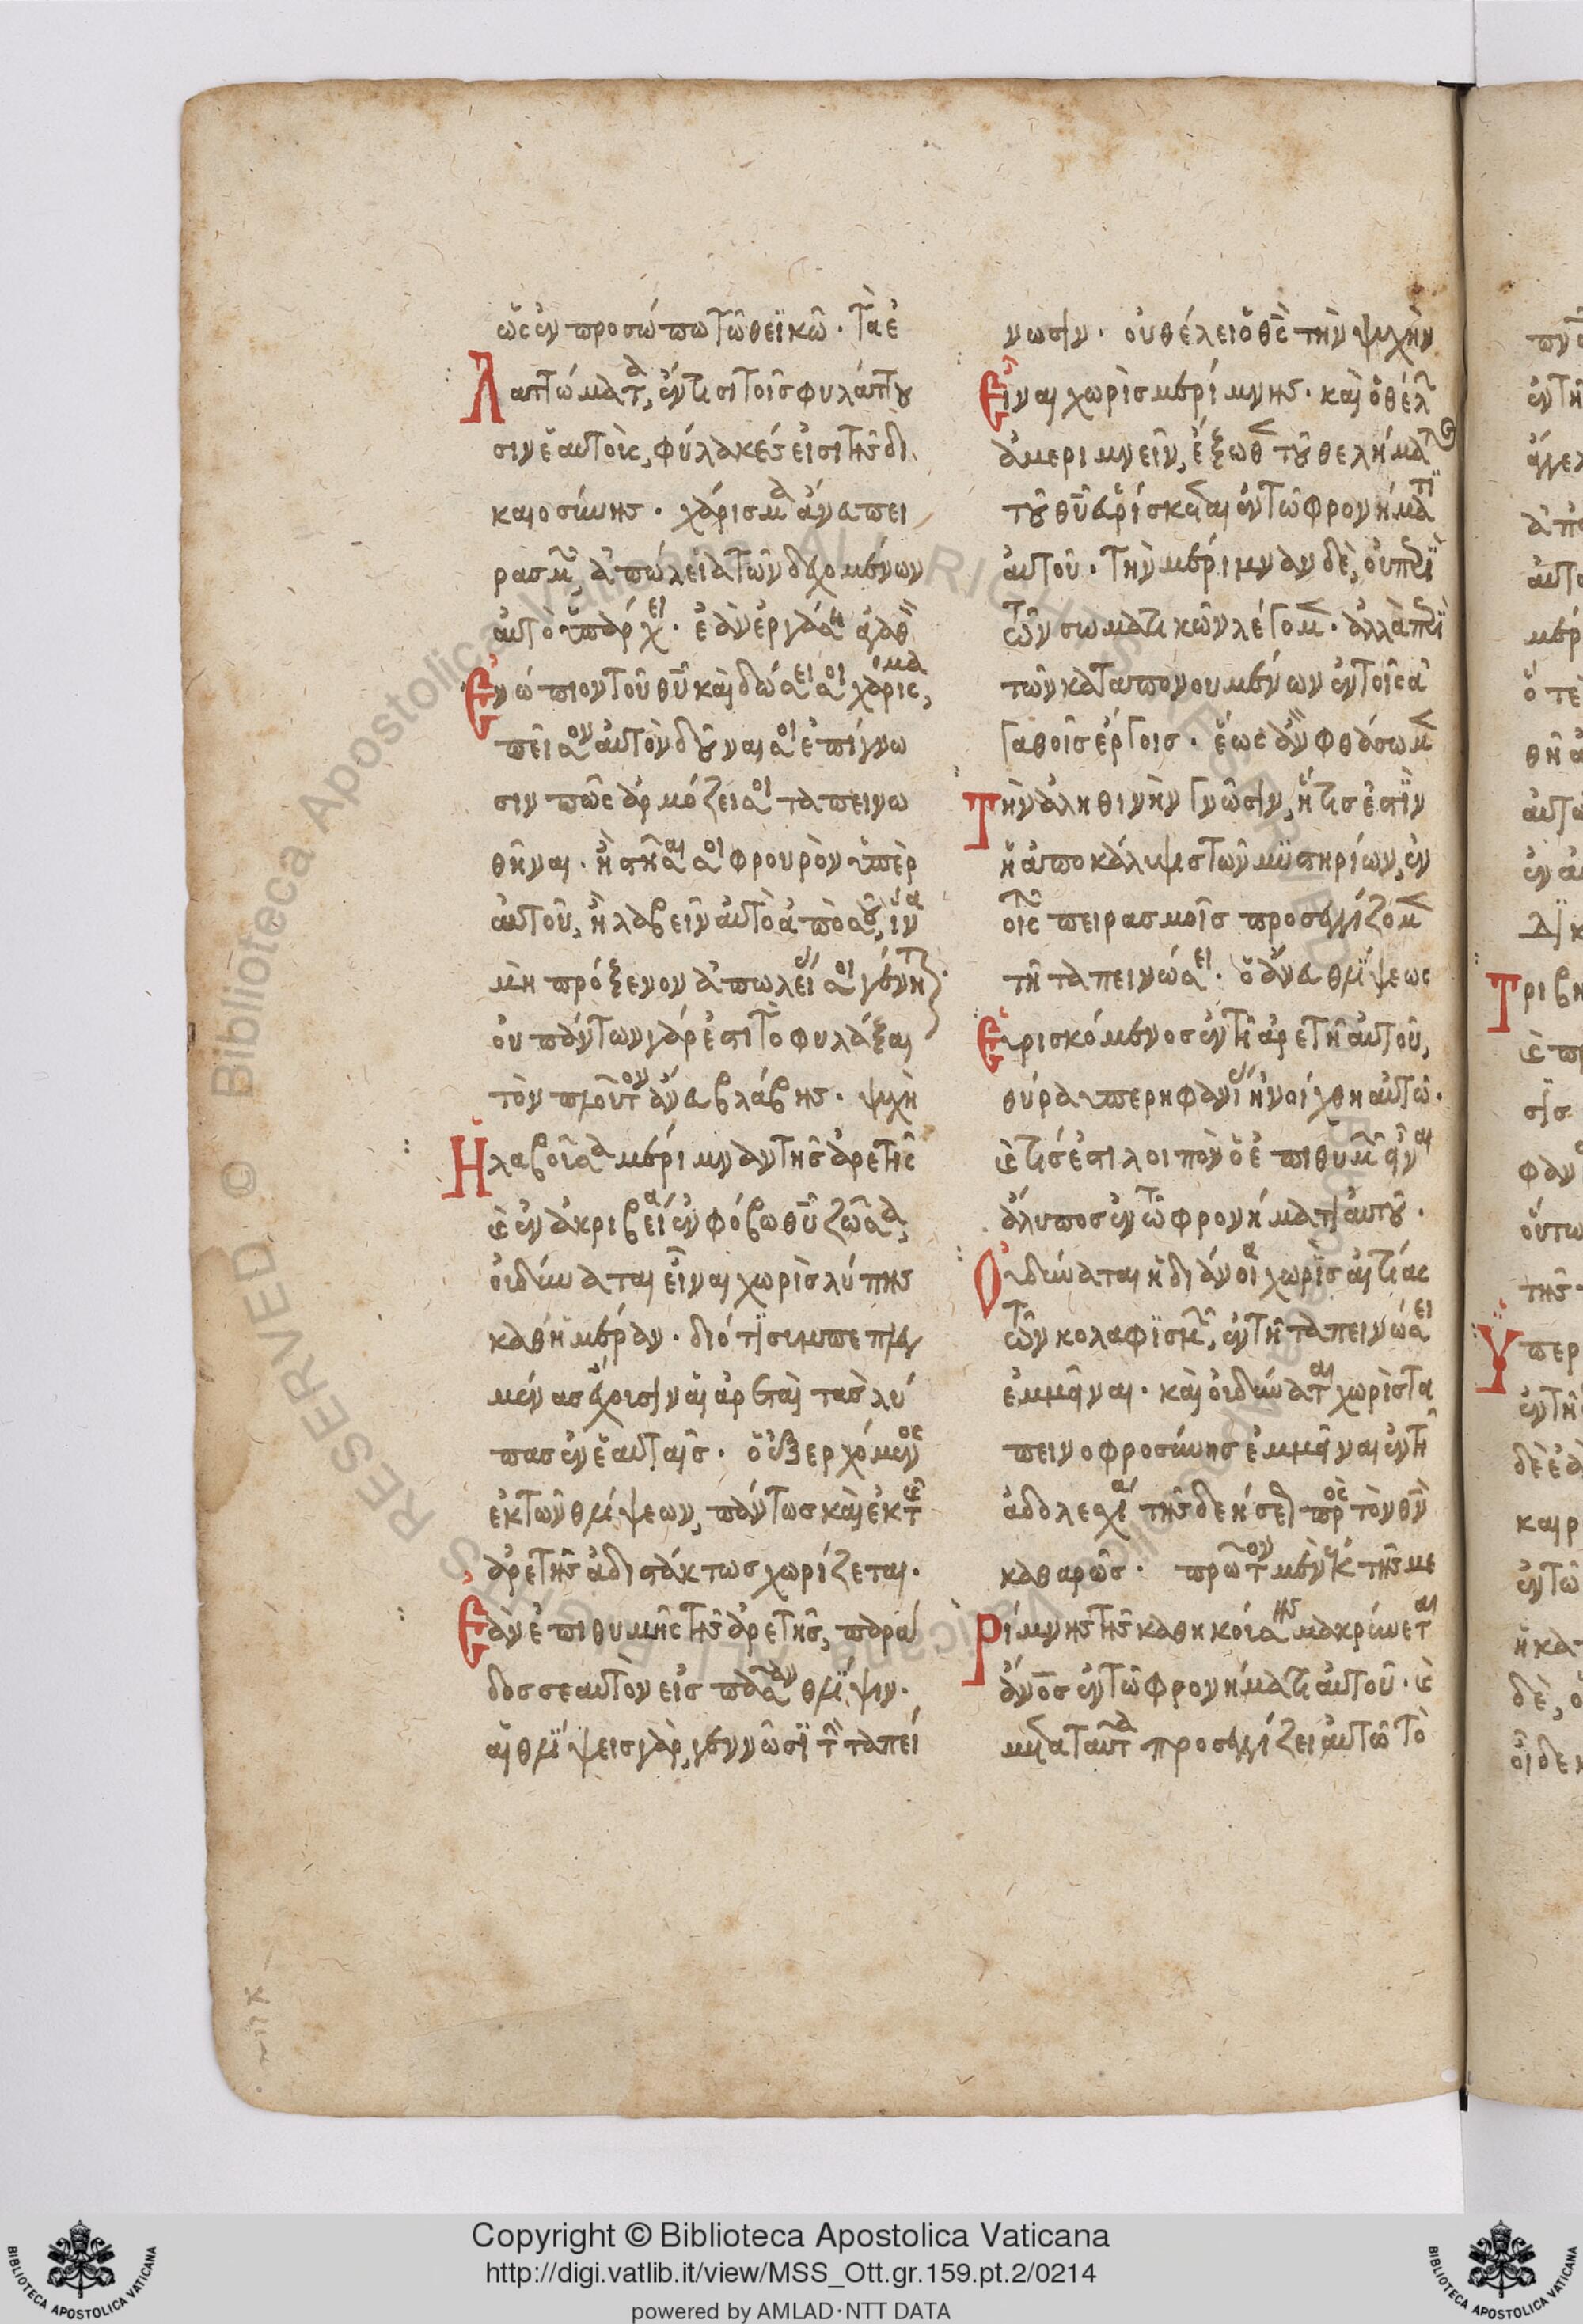 ὡς ἐν προσώπω τῶ θεϊκῶ. τὰ ἐ
λαττώματα, ἔν τισι τοῖς φυλάττου
σιν ἑαυτοῖς, φύλακές εἰσι τῆς δι
καιοσύνης. χάρισμα ἄνευ πει
ρασμοῦ, ἀπώλεια τῶν δεχομένων
αὐτὸ ὑπάρχει. ἐὰν ἐργάση ἀγαθὸν
ἐνώπιον τοῦ θῦ καὶ δώσει σοι χάρισμα,
πεῖσον αὐτὸν δοῦναι σοι ἐπίγνω
σιν πῶς ἁρμόζει σοι ταπεινω
θῆναι. ἢ στῆσαι σοι φρουρὸν ὑπὲρ
αὐτοῦ, ἢ λαβεῖν αὐτὸ ἀπὸ σοῦ, ἵνα
μὴ πρόξενον ἀπωλείας σοι γένηται.
οὐ πάντων γάρ ἐστι τὸ φυλάξαι
τὸν πλοῦτον ἄνευ βλάβης. ψυχὴ
ἡ λαβοῦσα μέριμναν τῆς ἀρετῆς
καὶ ἐν ἀκριβεία ἐν φόβω θῦ ζῶσα,
οὐ δύναται εἶναι χωρὶς λύπης
καθ ἡμέραν. διότι συμπεπλεγ
μένας ἔχουσιν αἱ ἀρεταὶ τὰς λύ
πας ἐν ἑαυταῖς. ὁ ἐξερχόμενος
ἐκ τῶν θλίψεων, πάντως καὶ ἐκ τῆς
ἀρετῆς ἀδιστάκτως χωρίζεται.
ἐὰν ἐπιθυμῆς τῆς ἀρετῆς, παρά
δος σεαυτὸν εἰς πᾶσαν θλίψιν.
αἱ θλίψεις γὰρ, γεννῶσι τὴν ταπεί
νωσιν. οὐ θέλει ὁ θς τὴν ψυχὴν
εἶναι χωρὶς μερίμνης. καὶ ὁ θέλων
ἀμεριμνεῖν, ἔξωθεν τοῦ θελήματος
τοῦ θῦ εὑρίσκεται ἐν τῶ φρονήματι
αὐτοῦ. τὴν μέριμναν δὲ, οὐ περὶ
τῶν σωματικῶν λέγομεν. ἀλλὰ περὶ
τῶν καταπονουμένων ἐν τοῖς ἀ
γαθοῖς ἔργοις. ἕως ἂν φθάσωμεν
τὴν ἀληθινὴν γνῶσιν, ἥτις ἐστὶν
ἡ ἀποκάλυψις τῶν μυστηρίων, ἐν
τοῖς πειρασμοῖς προσεγγίζομεν
τῆ ταπεινώσει. ὁ ἄνευ θλίψεως
εὑρισκόμενος ἐν τῆ ἀρετῆ αὐτοῦ,
θύρα ὑπερηφανίας ἠνοίχθη αὐτῶ.
καὶ τίς ἐστι λοιπὸν ὁ ἐπιθυμῶν εἶναι
ἄλυπος ἐν τῶ φρονήματι αὐτοῦ.
οὐ δύναται ἡ διάνοια χωρὶς αἰτίας
τῶν κολαφισμῶν, ἐν τῆ ταπεινώσει
ἐμμεῖναι. καὶ οὐ δύναται χωρὶς τα
πεινοφροσύνης ἐμμεῖναι ἐν τῆ
ἀδολεσχία τῆς δεήσεως πρὸς τὸν θν
καθαρῶς. πρῶτον μὲν ἐκ τῆς με
ρίμνης τῆς καθηκούσης μακρύνεται
ἄνος ἐν τῶ φρονήματι αὐτοῦ. καὶ
μετὰ ταῦτα προσεγγίζει αὐτῶ τὸ
Copyright © Biblioteca Apostolica Vaticana
http://digi.vatlib.it/view/MSS_Ott.gr.159.pt.2/0214
powered by AMLAD·NTT DATA